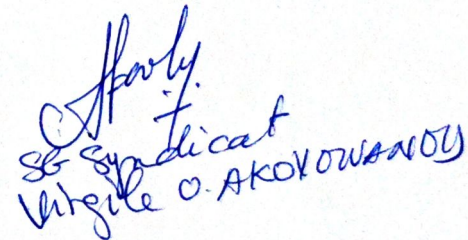 SG Syndicat
Virgile O. AKOVOWANOU